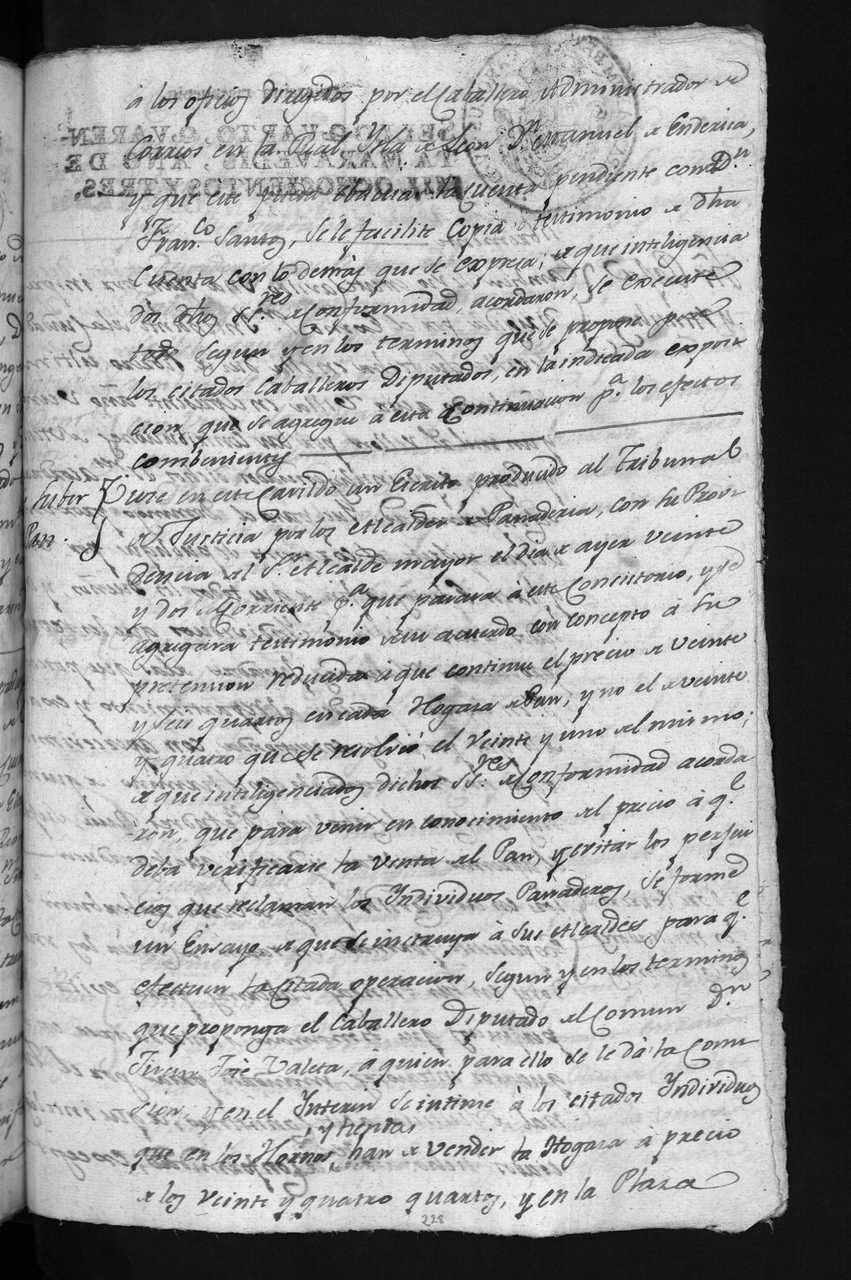 á los oficios dirigidos por el Caballero Administrador de
Correos en la Real Ysla de Leon Dn. Manuel de Enderica,
y que este pueda evacuar la cuenta pendiente con Dn
Franco. Santos, se le facilite Copia testimonio de dha
Cuenta con lo demás que se expresa; de que inteligencia
dos dhos SSres. de Conformidad acordaron, se execute
todo segun y en los terminos que se propone por
los citados Caballeros Diputados, en la indicada exposi
cion que se agregue á esta á continuacion pa. los efectos
combenientes
Pan.
Viose en este Cavildo un Escrito producido al Tribunal
de Justicia por los Alcaldes de Panaderia, con su Provi
dencia del Sr. Alcalde mayor el dia de ayer veinte
y dos del corriente pa. que pasara á este Consistorio, y se
agregara testimonio de su acuerdo con concepto á su
pretension reducida á que continue el precio de veinte
y seis quartos en cada Hogaza de Pan, y no el de veinte
y quatro que se resolvió el veinte y uno del mismo;
de que inteligenciados dichos SSres. de Conformidad acorda
ron, que para venir en conocimiento del precio á q.
deba verificarse la venta del Pan, y evitar los perjui
cios que reclaman los Individuos Panaderos, se forme
un Ensayo de que se instruya á sus Alcaldes para q.
efectuen la citada operacion, segun y en los terminos
que proponga el Caballero Diputado del Comun Dn
Juan José Valeta, a quien para ello se le dá la Comi
sion, y en el Interin se intime á los citados Individuos
y tiendas
que en los Hornos, han de vender la Hogaza á precio
de los veinte y quatro quartos, y en la Plaza
228